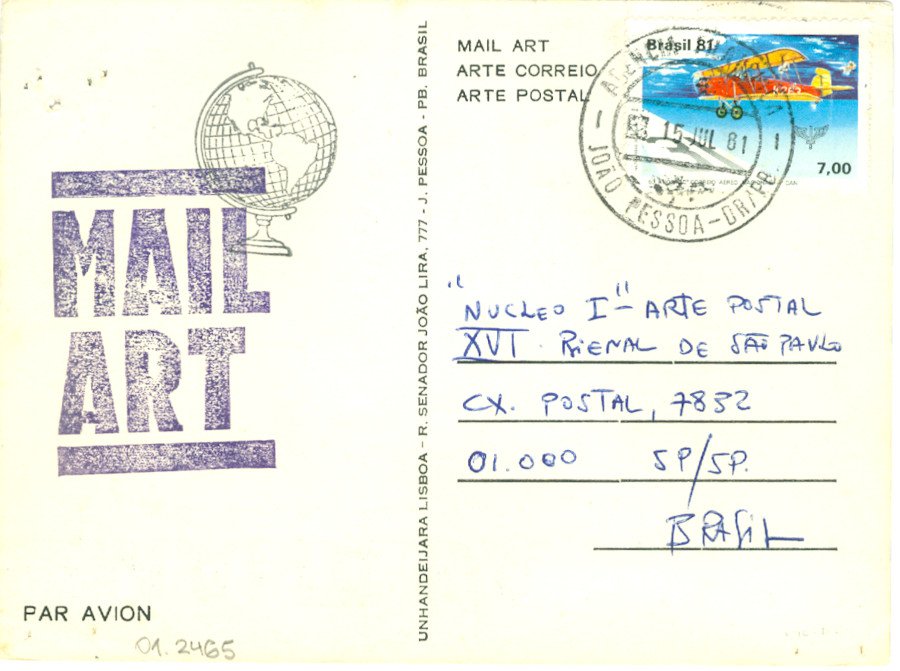 MAIL
ART
PAR AVION
01.2465
UNHANDEIJARA LISBOA - R. SENADOR JOÃO LIRA, 777 - J. PESSOA - PB. BRASIL
MAIL ART
ARTE CORREIO
ARTE POSTAL
Brasil 81
7,00
AGENCIA
15 JUL 81
JOÃO PESSOA-DR/PB
"NUCLEO I" - ARTE POSTAL
XVI. BIENAL DE SÃO PAULO
CX. POSTAL, 7832
01.000 SP/SP.
BRASIL